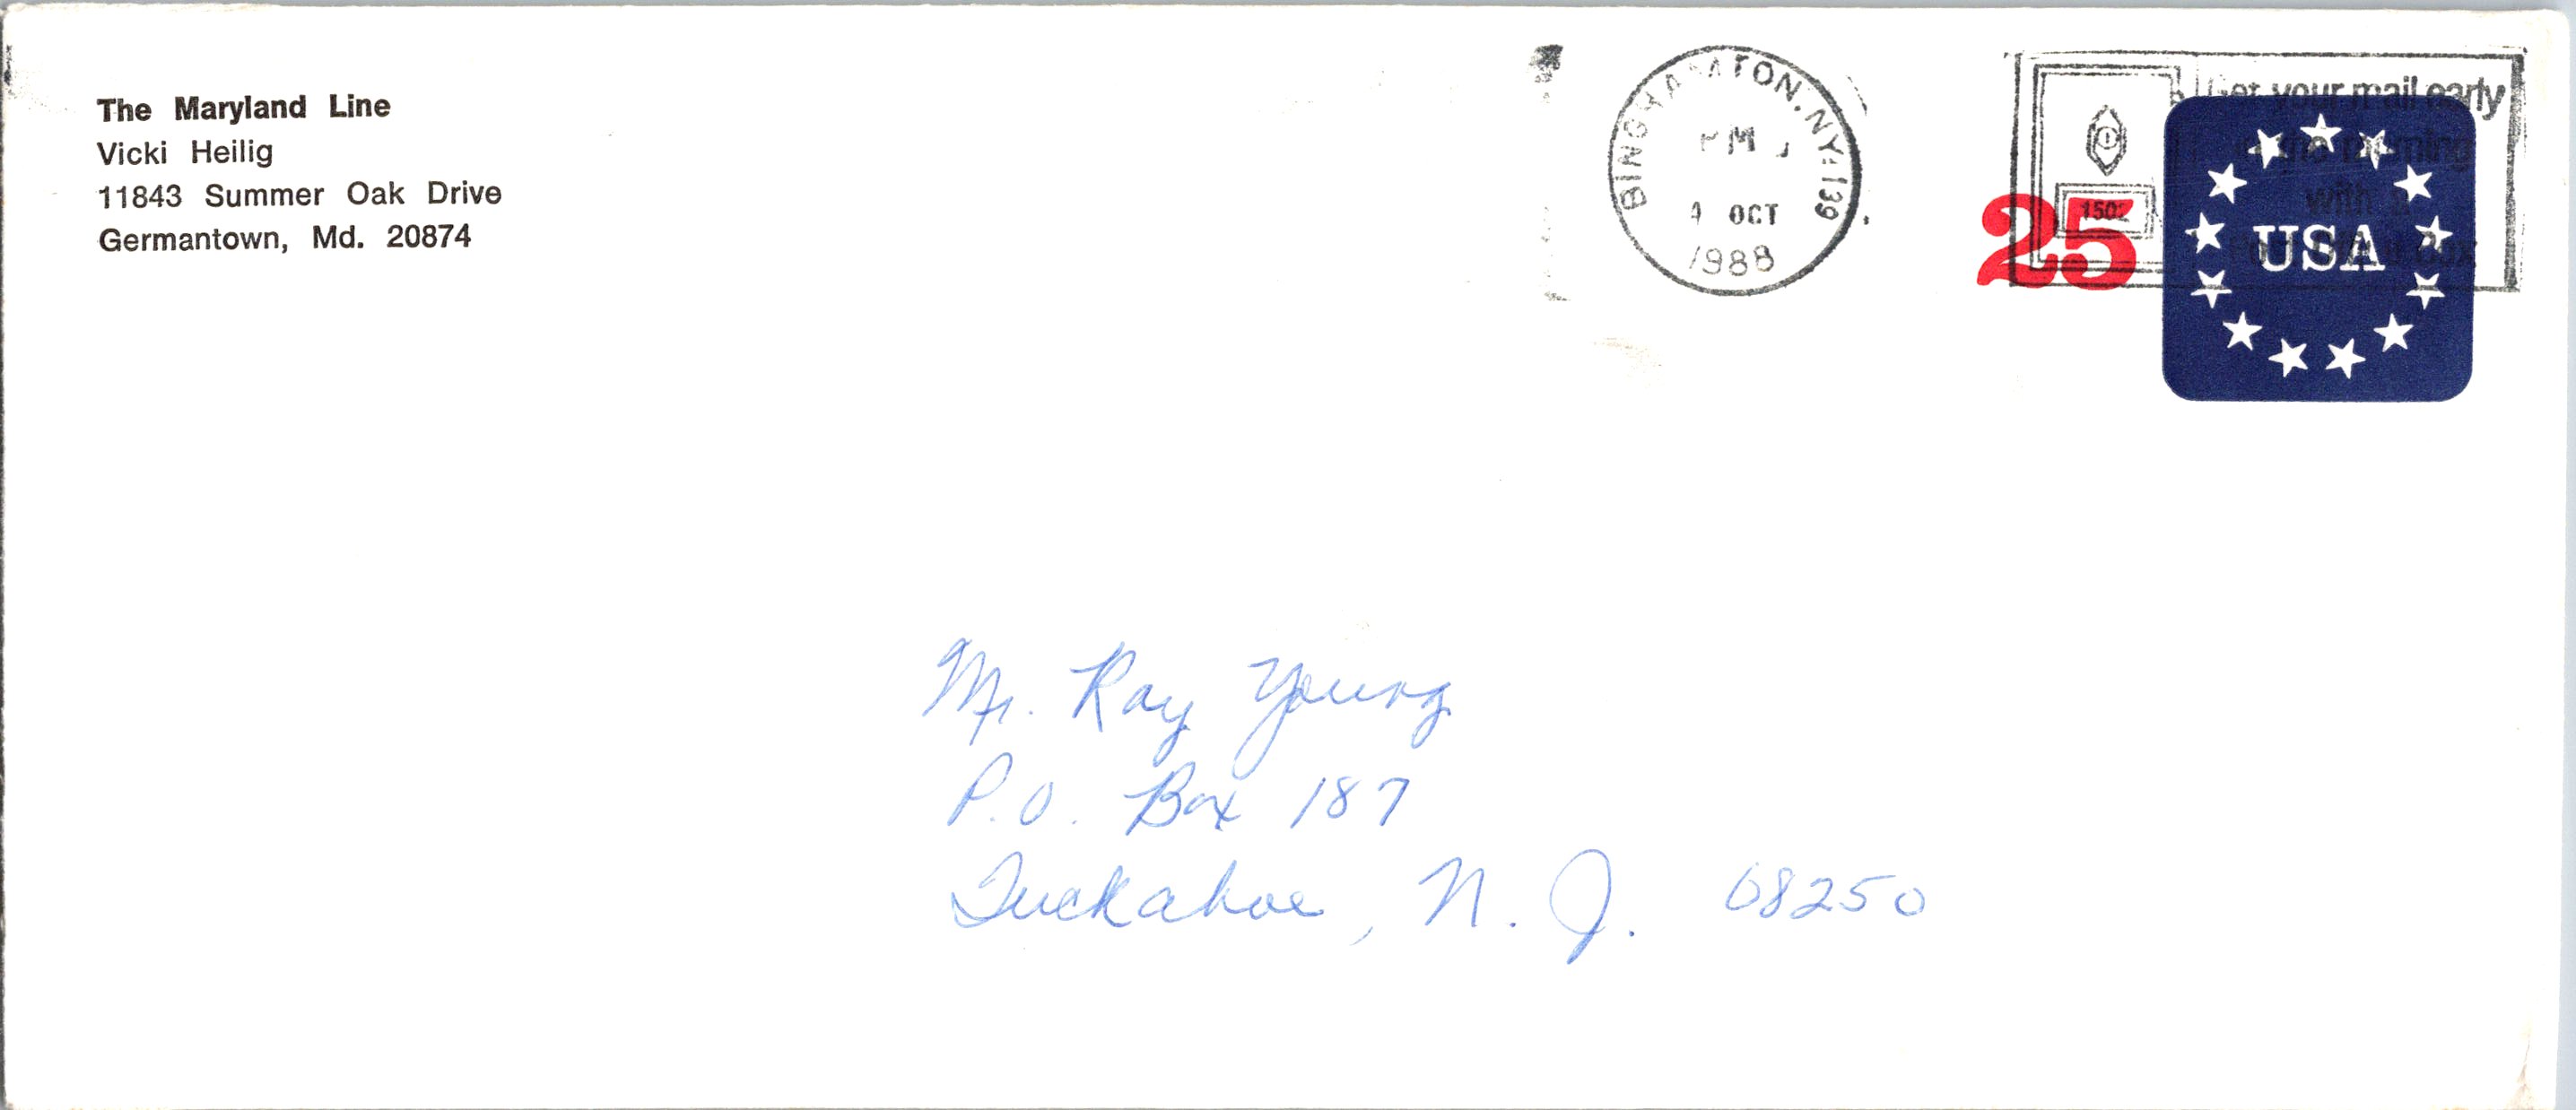 The Maryland Line
Vicki Heilig
11843 Summer Oak Drive
Germantown, Md. 20874
BINGHAMTON, NY 139
PM
OCT
1988
Get your mail early
morning
with a
Box
1502
25
USA
Mr. Ray Young
P.O. Box 187
Tuckahoe, N. J. 08250